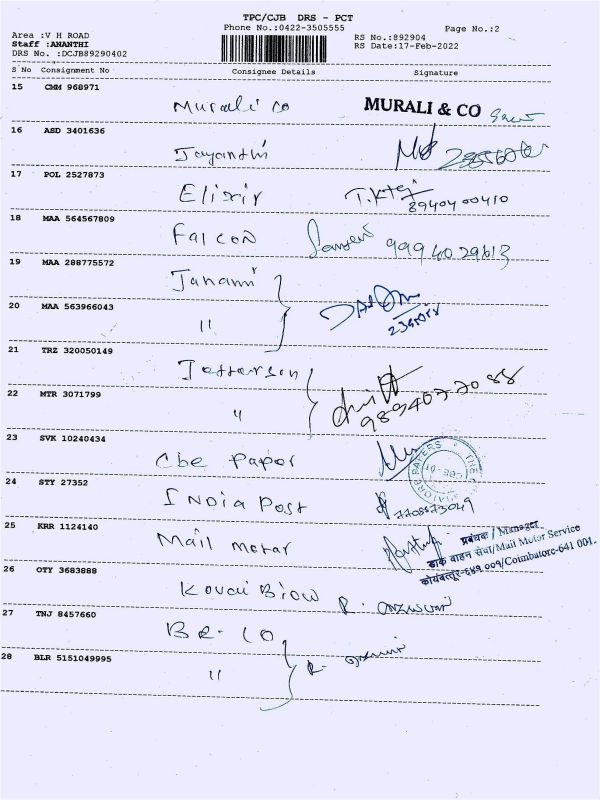 TPC/CJB DRS - PCT
Phone No.:0422-3505555
Page No.:2
Area :V H ROAD
Staff :ANANTHI
DRS No. :DCJB89290402
RS No.:892904
RS Date:17-Feb-2022
S No Consignment No Consignee Details Signature
15 CMM 968971 Murali co MURALI & CO
16 ASD 3401636 Jayanthi
17 POL 2527873 Elixir 8940400410
18 MAA 564567809 Falcon 9994029613
19 MAA 288775572 Janani
20 MAA 563966043 "
21 TRZ 320050149 Jefferson
22 MTR 3071799 " 9894077088
23 SVK 10240434 Cbe Papor
24 STY 27352 India Post 7708873049
25 KRR 1124140 Mail motar
प्रबंधक / Manager
डाक वाहन सेवा/Mail Motor Service
कोयंबत्तूर-६४१ ००१/Coimbatore-641 001.
26 OTY 3683888 Kovai Biow
27 TNJ 8457660 BR- CO
28 BLR 5151049995 "